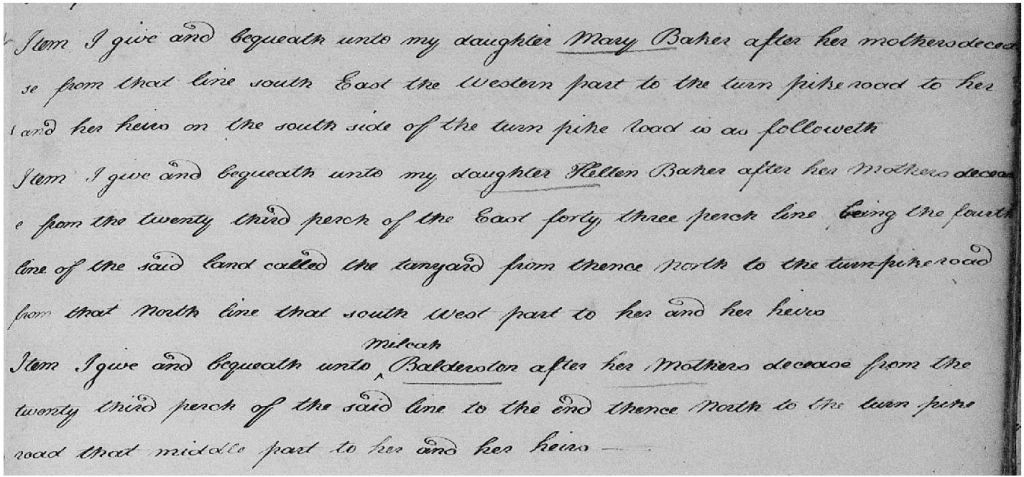 Item I give and bequeath unto my daughter Mary Baker after her mothers decea
se from that line south East the Western part to the turn pike road to her
and her heirs on the south side of the turn pike road is as followeth
Item I give and bequeath unto my daughter Hellen Baker after her Mothers deceas
e from the twenty third perch of the East forty three perch line being the fourth
line of the said land called the tanyard from thence North to the turn pike road
from that North line that south West part to her and her heirs
Milcah
Item I give and bequeath unto ‸ Balderston after her Mothers decease from the
twenty third perch of the said line to the end thence North to the turn pike
road that middle part to her and her heirs —